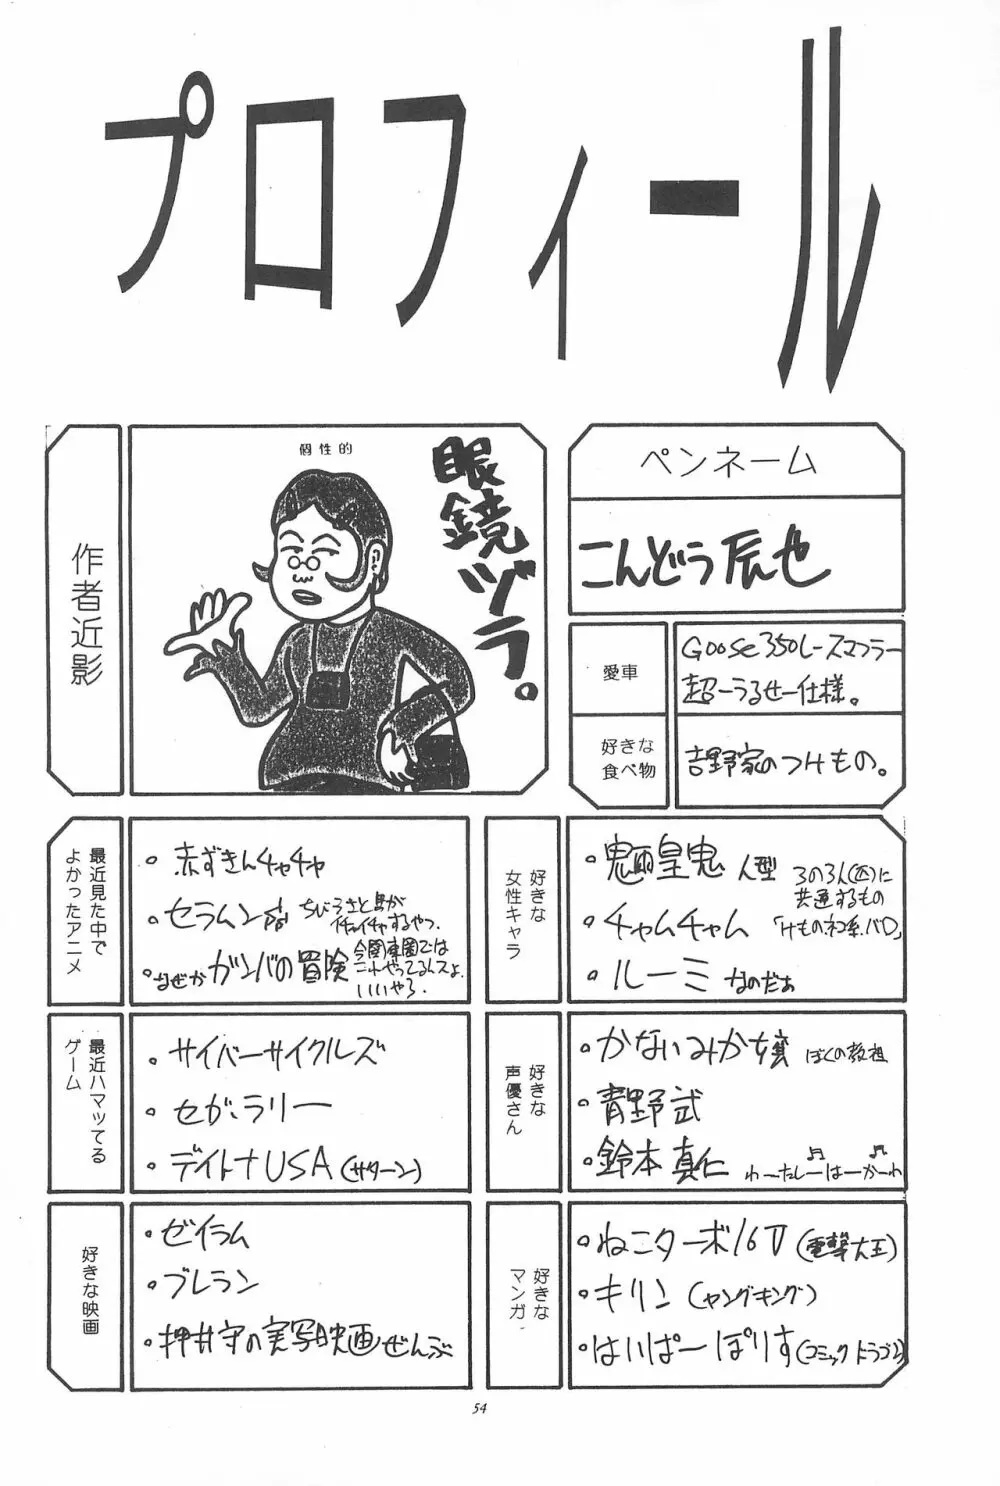 プロフィール
作者近影
個性的
眼鏡ヅラ。
ペンネーム
こんどう辰也
愛車
Goose350レースマフラー
超ーうるせー仕様。
好きな
食べ物
吉野家のつけもの。
最近見た中で
よかったアニメ
・赤ずきんチャチャ
・セラムン
ちびうさと馬が
イチャイチャするやつ。
・なぜかガンバの冒険
今関東圏では
これやってるんスよ。
いいやろ。
好きな
女性キャラ
・魁皇鬼 人型
・チャムチャム
・ルーミィなのだぁ
3の3人(匹)に
共通するもの
「けものネコ系.バロ」
最近ハマッてる
ゲーム
・サイバーサイクルズ
・セガ・ラリー
・デイトナUSA(サターン)
好きな
声優さん
・かないみか嬢 ぼくの教祖
・青野武
・鈴木真仁 わーたしーはーかーわ
好きな映画
・ゼイラム
・ブレラン
・押井守の実写映画ぜんぶ
好きな
マンガ
・ねこターボ16V(電撃大王)
・キリン(ヤングキング)
・はいぱーぽりす(コミックドラゴン)
54